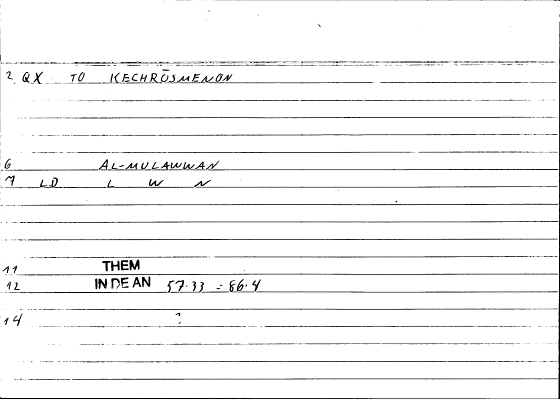 2 QX TO KECHRŌSMENON
6 AL-MULAWWAN
7 LD L W N
11 THEM
12 IN DE AN 57.33 = 86.4
14 ?